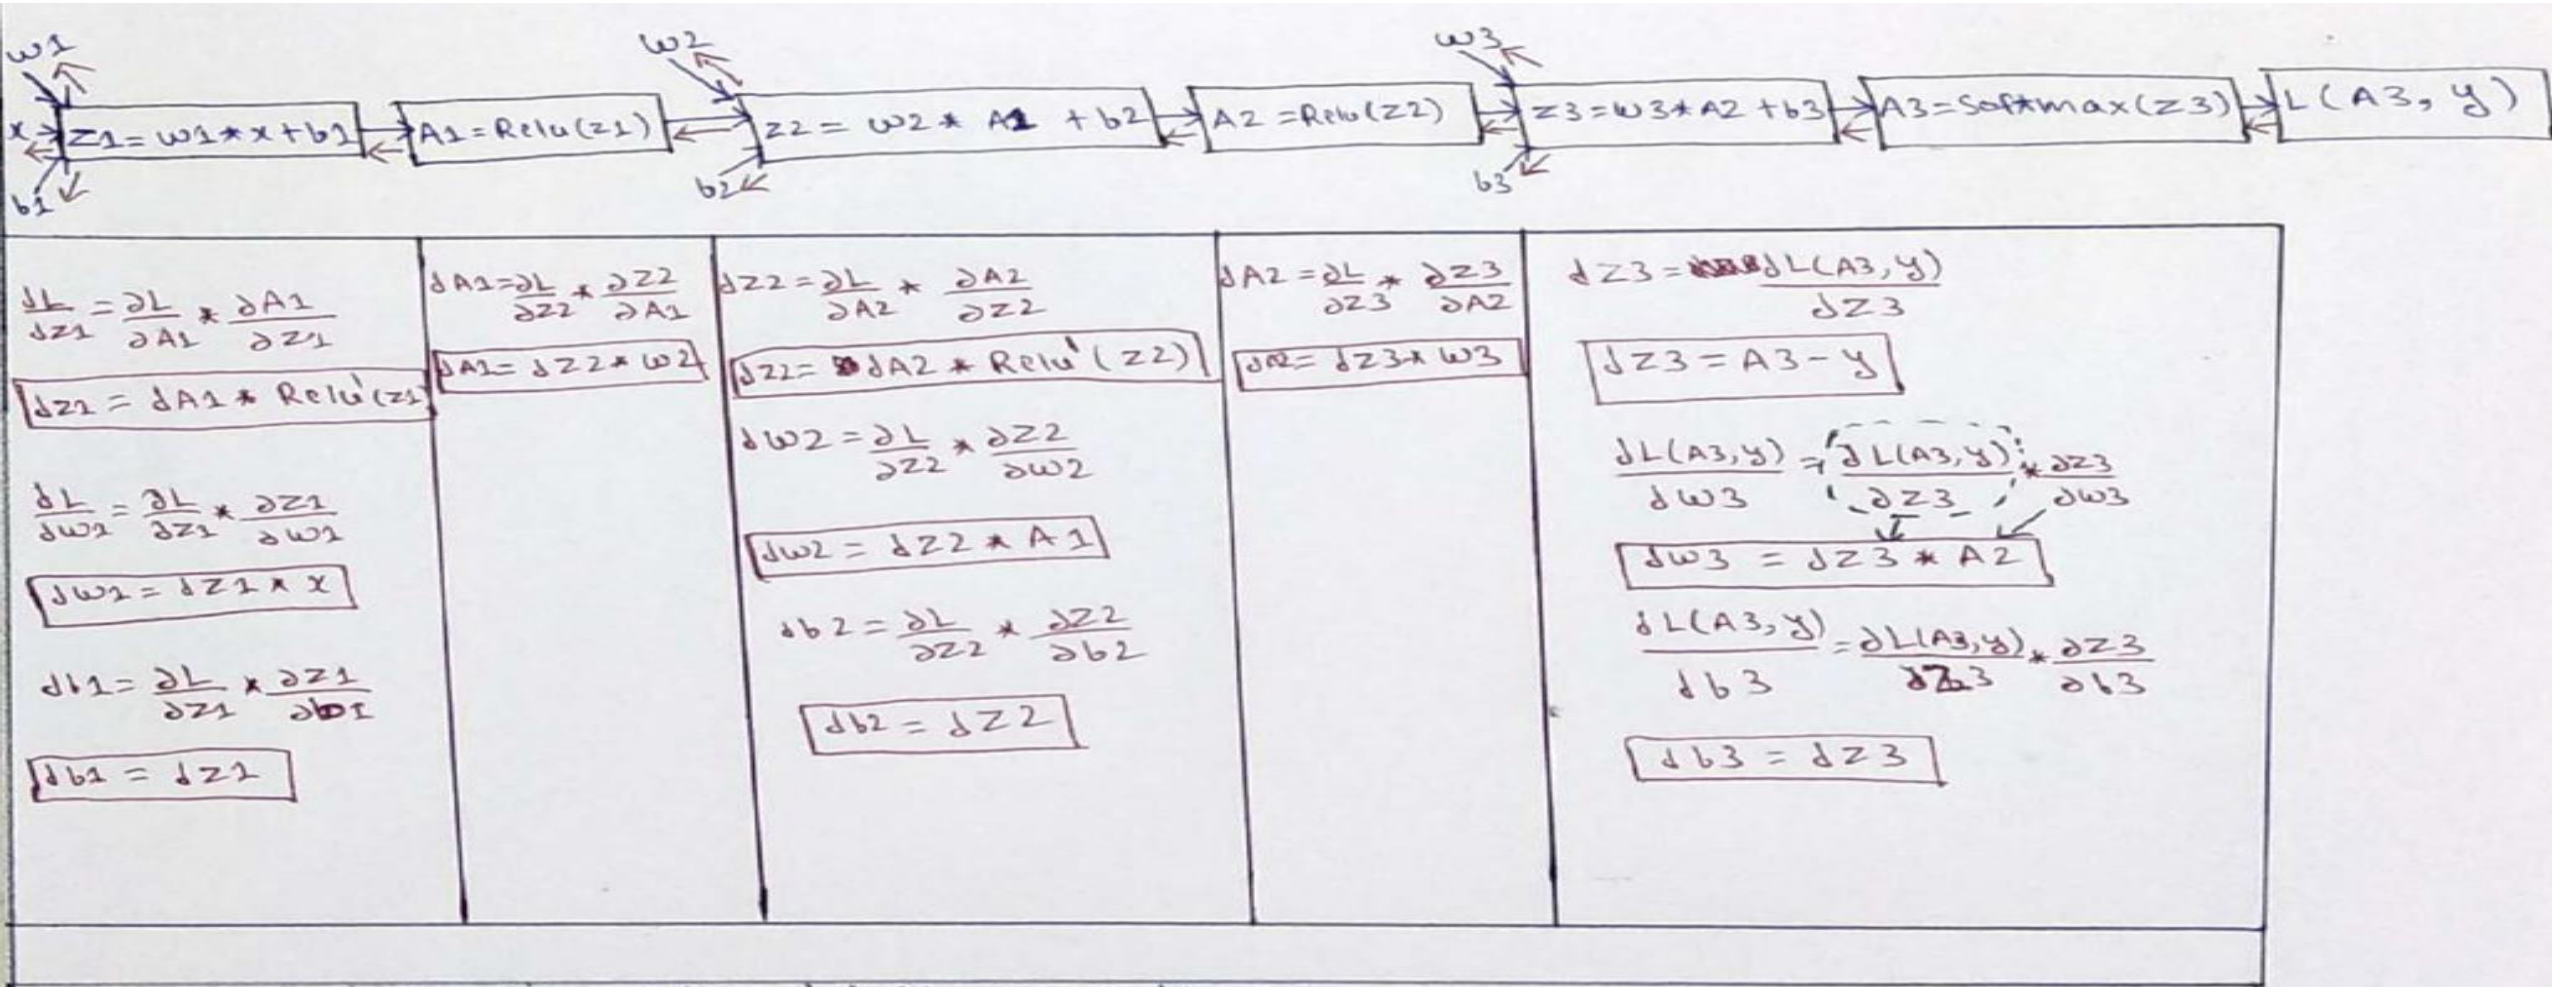 w1 w2 w3
x z1 = w1 * x + b1 A1 = Relu(z1) z2 = w2 * A1 + b2 A2 = Relu(z2) z3 = w3 * A2 + b3 A3 = Softmax(z3) L(A3, y)
b1 b2 b3
dL/dz1 = ∂L/∂A1 * ∂A1/∂z1
dz1 = dA1 * Relu'(z1)
dL/dw1 = ∂L/∂z1 * ∂z1/∂w1
dw1 = dz1 * x
db1 = ∂L/∂z1 * ∂z1/∂b1
db1 = dz1
dA1 = ∂L/∂z2 * ∂z2/∂A1
dA1 = dz2 * w2
dz2 = ∂L/∂A2 * ∂A2/∂z2
dz2 = dA2 * Relu'(z2)
dw2 = ∂L/∂z2 * ∂z2/∂w2
dw2 = dz2 * A1
db2 = ∂L/∂z2 * ∂z2/∂b2
db2 = dz2
dA2 = ∂L/∂z3 * ∂z3/∂A2
dA2 = dz3 * w3
dz3 = dL(A3, y)/dz3
dz3 = A3 - y
dL(A3, y)/dw3 = ∂L(A3, y)/∂z3 * ∂z3/∂w3
dw3 = dz3 * A2
dL(A3, y)/db3 = ∂L(A3, y)/∂z3 * ∂z3/∂b3
db3 = dz3